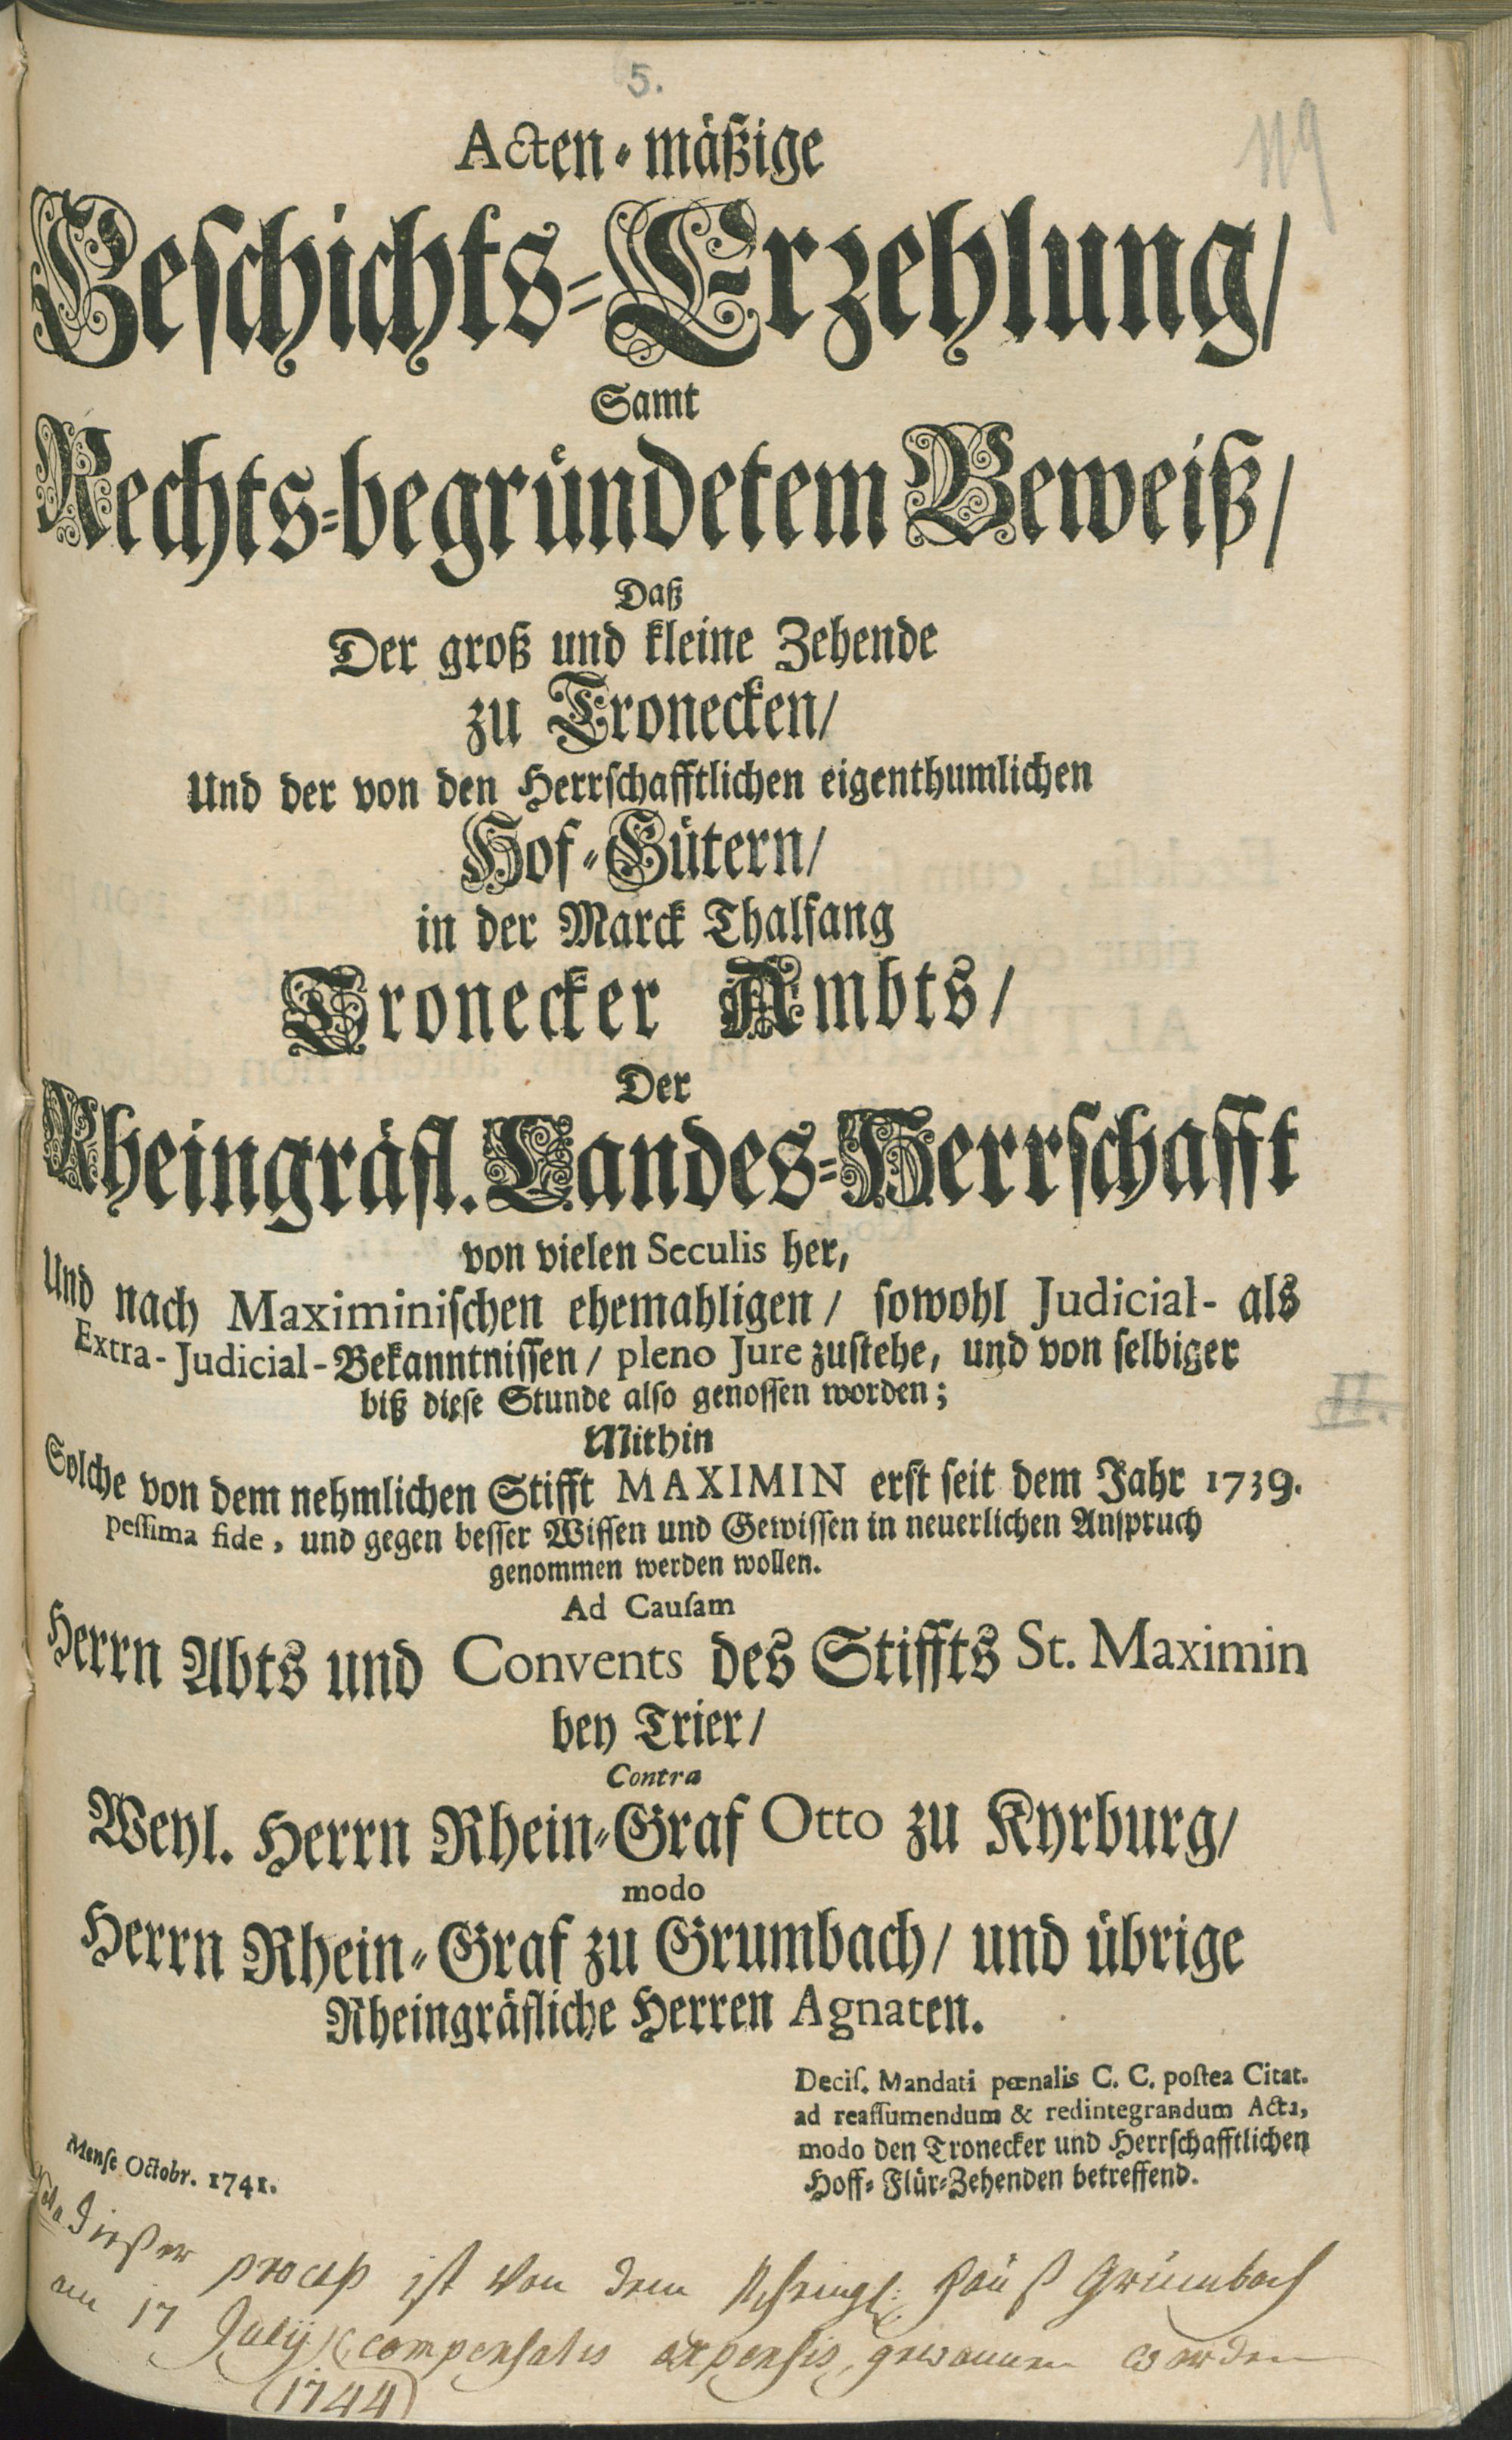 5.
119
Acten-mäßige
Geschichts-Erzehlung/
Samt
Rechts-begründetem Beweiß/
Daß
Der groß und kleine Zehende
zu Tronecken/
Und der von den Herrschafftlichen eigenthumlichen
Hof-Gütern/
in der Marck Thalfang
Tronecker Ambts/
Der
Rheingräfl. Landes-Herrschafft
von vielen Seculis her,
Und nach Maximinischen ehemahligen / sowohl Judicial- als
Extra-Judicial-Bekanntnissen / pleno Jure zustehe, und von selbiger
biß diese Stunde also genossen worden;
Mithin
Solche von dem nehmlichen Stifft MAXIMIN erst seit dem Jahr 1739.
pessima fide, und gegen besser Wissen und Gewissen in neuerlichen Anspruch
genommen werden wollen.
Ad Causam
Herrn Abts und Convents des Stiffts St. Maximin
bey Trier/
Contra
Weyl. Herrn Rhein-Graf Otto zu Kyrburg/
modo
Herrn Rhein-Graf zu Grumbach/ und übrige
Rheingräfliche Herren Agnaten.
Decis. Mandati pœnalis C. C. postea Citat.
ad reassumendum & redintegrandum Acta,
modo den Tronecker und Herrschafftlichen
Hoff-Flür-Zehenden betreffend.
Mense Octobr. 1741.
II.
dießer proceß ist von dem Rheingl. Hauß Grumbach
am 17 Julij compensatis expensis, gewonnen worden
(1744)